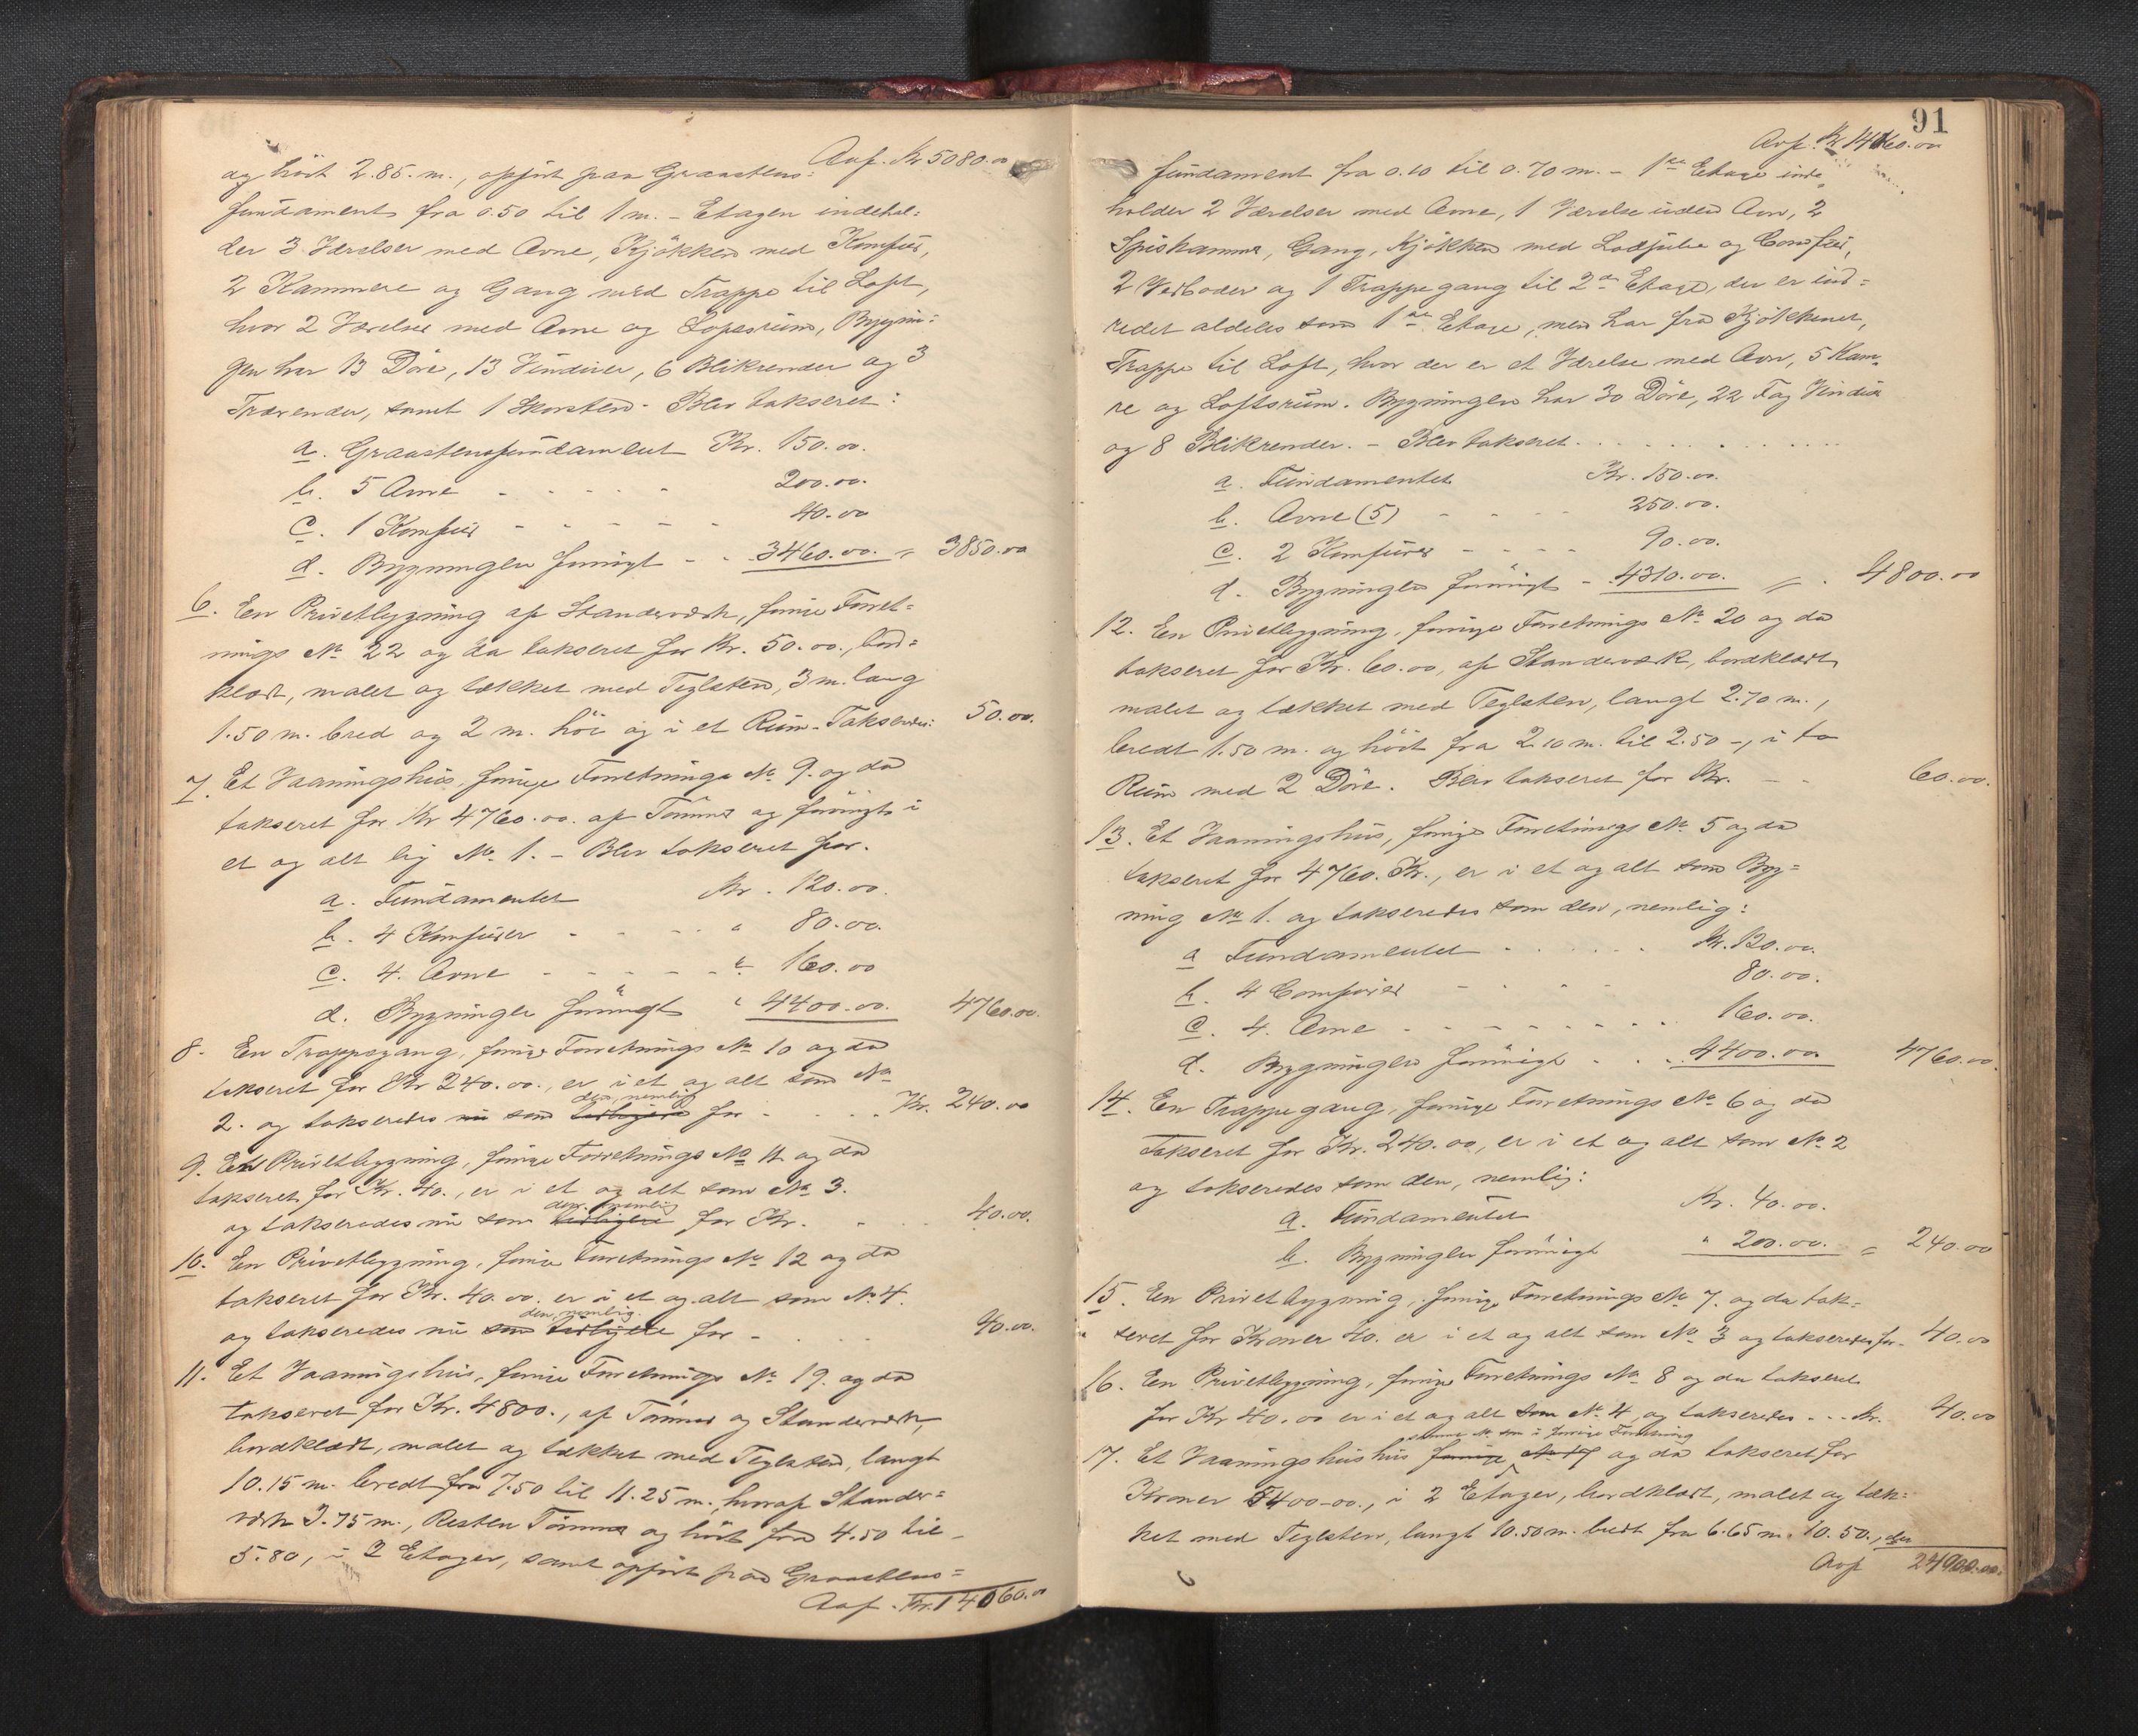 Avf. Kr 5080.00
og höit 2.85. m., opfört paa Graastens=
fundament fra 0.50 til 1 m. – Etagen indehol=
der 3 Værelser med Ovne, Kjökken med Komfür,
2 Kammere og Gang med Trappe til Loft,
hvor 2 Værelser med Ovne og Loftsrüm, Bygnin=
gen har 13 Döre, 13 Vindüer, 6 Blikrender og 3
Trærender, samt 1 Skorsten. Blev takseret:
a. Graastensfundament Kr. 150.00.
b. 5 Ovne - - - - - 200.00.
c. 1 Komfür - - - - - 40.00
d. Bygningen forövrigt - - 3460.00. = 3850.00
6. En Privetbygning af Standerværk, forrige Forret=
nings No 22 og da takseret for Kr. 50.00., bord=
klædt, malet og tækket med Teglsten, 3 m. lang
1.50 m. bred og 2 m. höi og i et Rüm. Takseredes: 50.00.
7. Et Vaaningshüs, forrige Forretnings No 9. og da
takseret for Kr 4760.00. af Tömmer og forövrigt i
et og alt lig No 1. – Blev takseret for.
a. Fundamentet Kr. 120.00.
b. 4 Komfürer - - - - " 80.00.
c. 4. Ovne - - - - - " 160.00
d. Bygningen forövrigt " 4400.00. 4760.00.
8. En Trappegang, forrige Forretnings No 10 og da
takseret for Kr 240.00., er i et og alt som No
den, nemlig
2. og takseredes nü som tidligere for - - - Kr. 240.00
9. En Privetbygning, forrige Forretnings No 11 og da
takseret for Kr. 40., er i et og alt som No 3.
den nemlig
og takseredes nü som tidligere for Kr. - - 40.00.
10. En Privetbygning, forrige Forretnings No 12 og da
takseret for Kr. 40.00. er i et og alt som No 4.
den, nemlig.
og takseredes nü som tidligere for - . . . 40.00.
11. Et Vaaningshüs, forrige Forretnings No 19. og da
takseret for Kr. 4800., af Tömmer og Standerværk,
bordklædt, malet og tækket med Teglsten, langt
10.15 m. bredt fra 7.50 til 11.25 m. hvoraf Stander=
værk 3.75 m., Resten Tömmer og höit fra 4.50 til
5.80, i 2 Etager, samt opfört paa Graastens=
Avf. Kr. 14060.00
91
Avf. Kr 14060.00
fündament fra 0.10 til 0.70 m. – 1ste Etage inde=
holder 2 Værelser med Ovne, 1 Værelse uden Ovn, 2
Spiskammer, Gang, Kjökken med og Comfür,
2 Vedboder og 1 Trappegang til 2den Etage, der er ind=
redet aldeles som 1ste Etage, men har fra Kjökkenet,
Trappe til Loft, hvor der er et Værelse med Ovn, 5 Kam=
re og Loftsrüm. Bygningen har 30 Döre, 22 Fag Vindüer
og 8 Blikrender. – Blev takseret . . . . . . . .
a. Fundamentet Kr. 150.00.
b. Ovne (5) - - - - 250.00.
c. 2 Komfürer - - - - 90.00.
d. Bygningen forövrigt - 4310.00. = . 4800.00
12. En Privetbygning, forrige Forretnings No 20 og da
takseret for Kr. 60.00, af Standerværk, bordklædt,
malet og tækket med Teglsten, langt 2.70 m.,
bredt 1.50 m. og höit fra 2.10 m. til 2.50 -, i to
Rüm med 2 Döre. Blev takseret for Kr. - - 60.00.
13. Et Vaaningshüs, forrige Forretnings No 5 og da
takseret for 4760. Kr., er i et og alt som Byg=
ning No 1. og takseredes som den, nemlig:
a Fundamentet - - - - - Kr. 120.00.
b. 4 Comfürer - - - - 80.00.
c. 4. Ovne - - - - - - - 160.00.
d. Bygningen forövrigt - - . 4400.00 4760.00.
14. En Trappegang, forrige Forretnings No 6 og da
Takseret for Kr. 240.00, er i et og alt som No 2
og takseredes som den, nemlig:
a. Fundamentet Kr. 40.00.
b. Bygningen forövrigt " 200.00. = 240.00
15. En Privetbygning, forrige Forretnings No 7. og da tak=
seret for Kroner 40. er i et og alt som No 3 og takseredes for - 40.00
16. En Privetbygning, forrige Forretnings No 8 og da takseret
for Kr 40.00 er i et og alt som No 4 og takseredes - - - Kr. 40.00
samme No som i forrige Forretning
17. Et Vaaningshüshüs forrige No 17 og da takseret for
Kroner 5400-00., i 2 Etager, bordklædt, malet og tæk=
ket med Teglsten, langt 10.50 m. bredt fra 6.65 m. 10.50.,
Avf 24900.00.